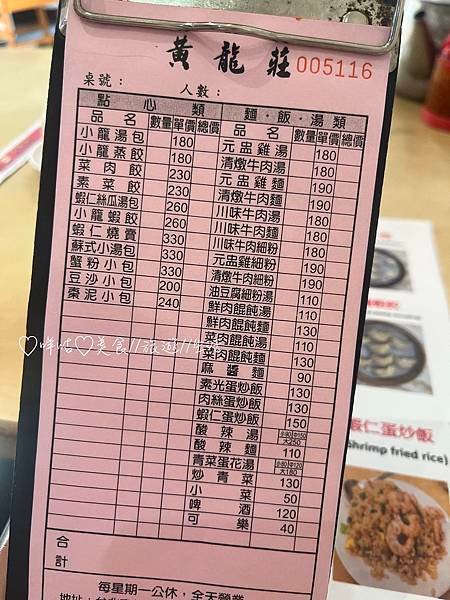 黃龍莊 005116
桌號： 人數：
點心類 麵・飯・湯類
品名 數量 單價 總價 品名 數量 單價 總價
小龍湯包 180 元盅雞湯 180
小龍蒸餃 180 清燉牛肉湯 180
菜肉餃 230 元盅雞麵 190
素菜餃 230 清燉牛肉麵 190
蝦仁絲瓜湯包 260 川味牛肉湯 180
小龍蝦餃 260 川味牛肉麵 180
蝦仁燒賣 330 川味牛肉細粉 180
蘇式小湯包 330 元盅雞細粉 190
蟹粉小包 330 清燉牛肉細粉 190
豆沙小包 200 油豆腐細粉湯 110
棗泥小包 240 鮮肉餛飩湯 110
鮮肉餛飩麵 130
菜肉餛飩湯 110
菜肉餛飩麵 130
麻醬麵 90
素光蛋炒飯 130
肉絲蛋炒飯 130
蝦仁蛋炒飯 150
酸辣湯 小90 中150 大250
酸辣麵 110
青菜蛋花湯 小80 中120 大180
炒青菜 130
小菜 50
啤酒 120
可樂 40
合計
每星期一公休，全天營業
蝦仁蛋炒飯
(shrimp fried rice)
♡咩咕♡美食//旅遊//